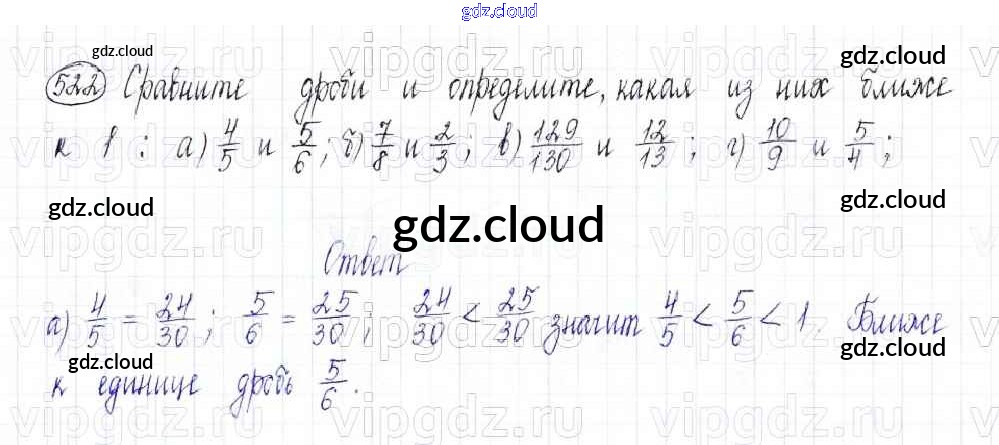 gdz.cloud
gdz.cloud gdz.cloud
vipgdz.ru vipgdz.ru vipgdz.ru
522 Сравните дроби и определите, какая из них ближе
к 1 : а) 4/5 и 5/6; б) 7/8 и 2/3; в) 129/130 и 12/13; г) 10/9 и 5/4;
vipgdz.ru vipgdz.ru vipgdz.ru
gdz.cloud gdz.cloud gdz.cloud
Ответ
vipgdz.ru vipgdz.ru vipgdz.ru
а) 4/5 = 24/30; 5/6 = 25/30; 24/30 < 25/30 значит 4/5 < 5/6 < 1. Ближе
gdz.cloud gdz.cloud
к единице дробь 5/6.
vipgdz.ru vipgdz.ru vipgdz.ru